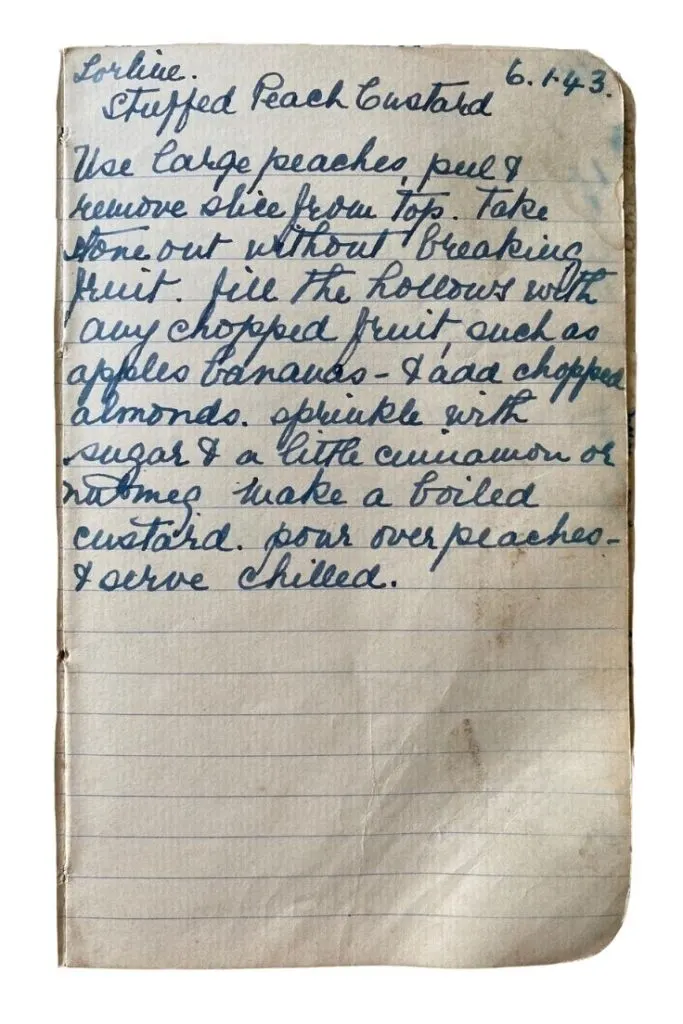 Lorline. 6.1.43.
Stuffed Peach Custard
Use large peaches, peel &
remove slice from top. Take
stone out without breaking
fruit. fill the hollows with
any chopped fruit, such as
apples bananas - & add chopped
almonds. sprinkle with
sugar & a little cinnamon or
nutmeg make a boiled
custard. pour over peaches -
& serve chilled.